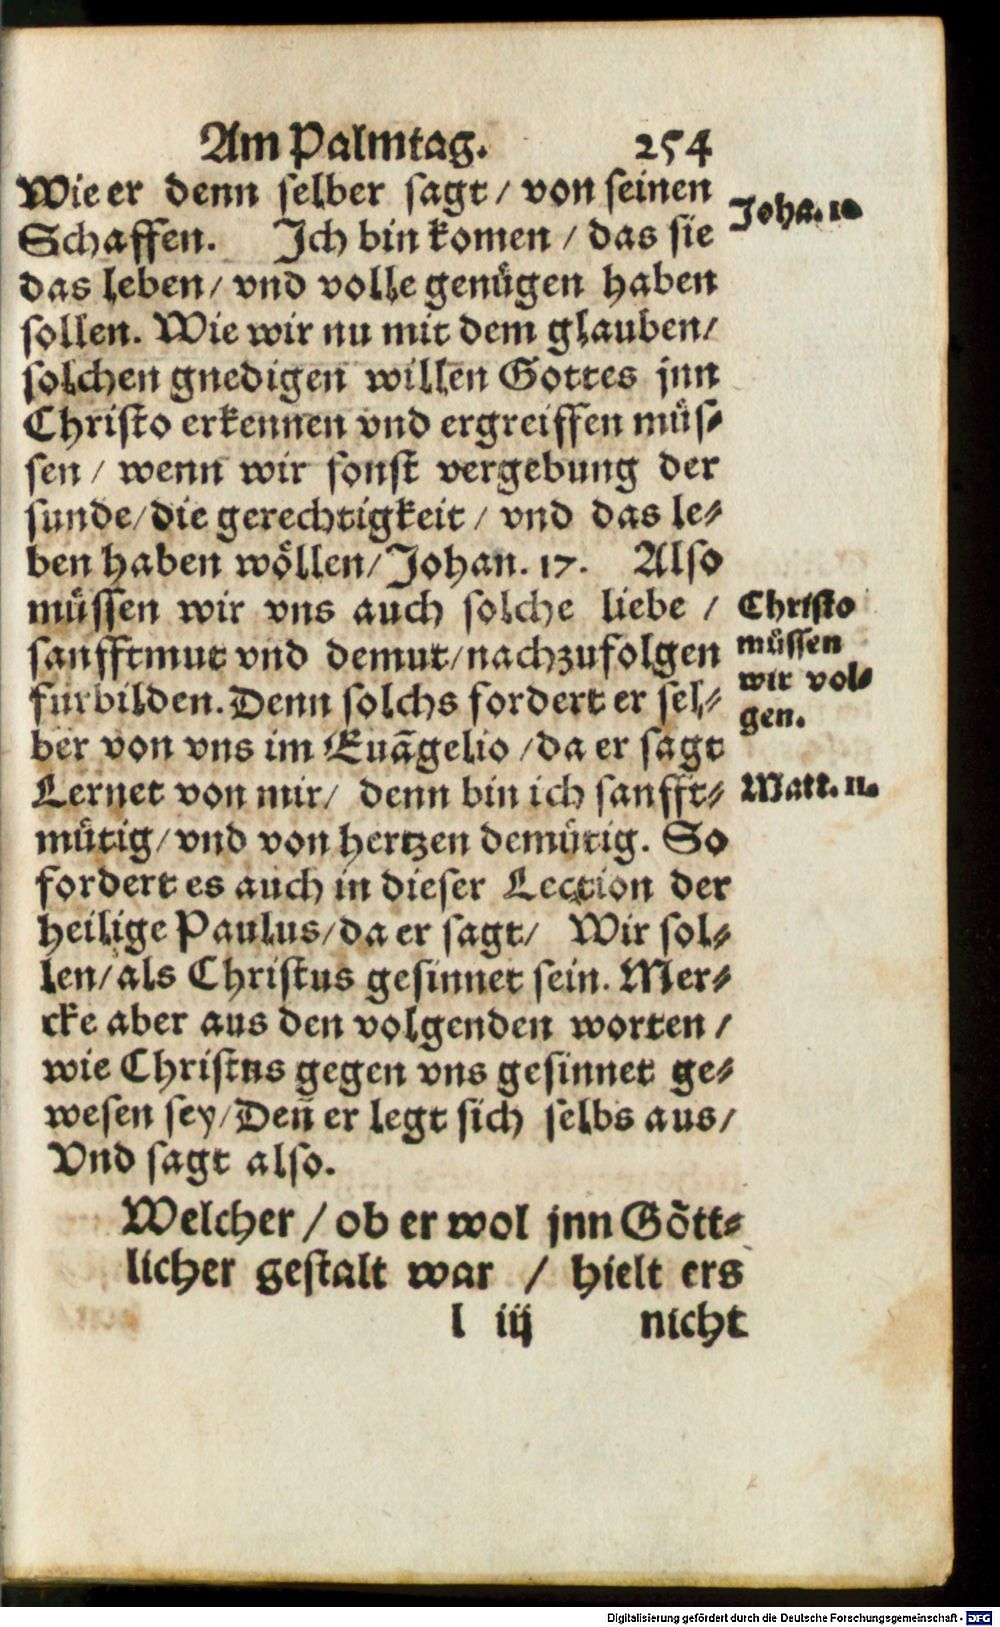 Am Palmtag. 254
Wie er denn selber sagt / von seinen
Schaffen. Ich bin komen / das sie
das leben / vnd volle genůgen haben
sollen. Wie wir nu mit dem glauben /
solchen gnedigen willen Gottes jnn
Christo erkennen vnd ergreiffen můs⸗
sen / wenn wir sonst vergebung der
sunde / die gerechtigkeit / vnd das le⸗
ben haben wöllen / Johan. 17. Also
müssen wir vns auch solche liebe /
sanfftmut vnd demut / nachzufolgen
furbilden. Denn solchs fordert er sel⸗
ber von vns im Euãgelio / da er sagt
Lernet von mir / denn bin ich sanfft⸗
můtig / vnd von hertzen demůtig. So
fordert es auch in dieser Lection der
heilige Paulus / da er sagt / Wir sol⸗
len / als Christus gesinnet sein. Mer⸗
cke aber aus den volgenden worten /
wie Christus gegen vns gesinnet ge⸗
wesen sey / Deñ er legt sich selbs aus /
Vnd sagt also.
Welcher / ob er wol jnn Gött⸗
licher gestalt war / hielt ers
l iij nicht
Joha. 10
Christo
müssen
wir vol⸗
gen.
Matt. 11.
Digitalisierung gefördert durch die Deutsche Forschungsgemeinschaft - DFG